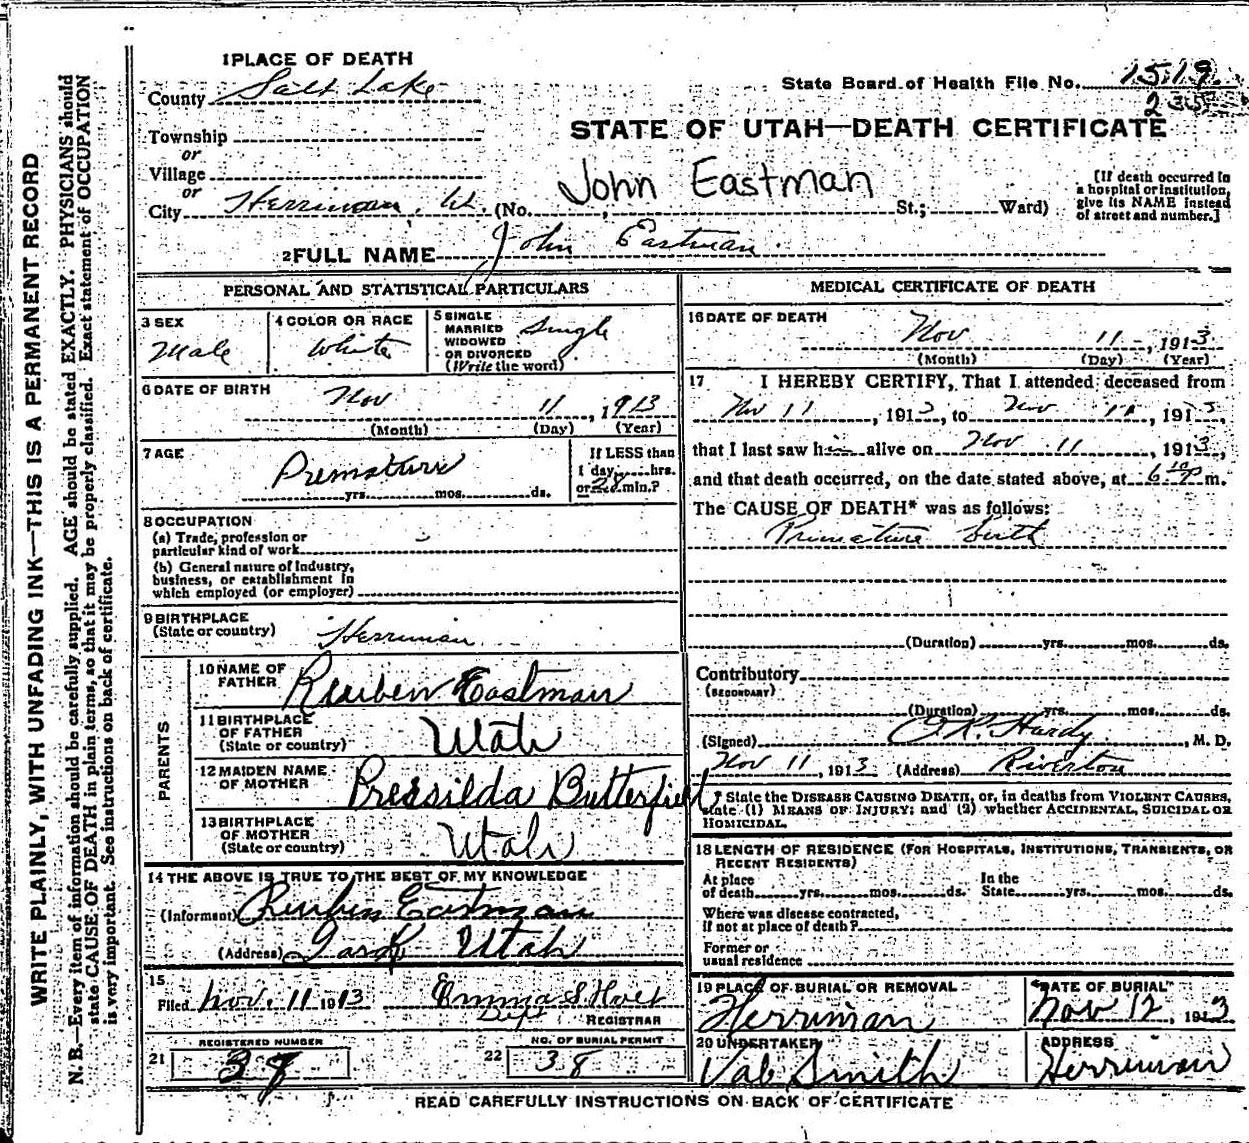 WRITE PLAINLY, WITH UNFADING INK—THIS IS A PERMANENT RECORD
N. B. Every item of information should be carefully supplied. AGE should be stated EXACTLY. PHYSICIANS should
state CAUSE OF DEATH in plain terms, so that it may be properly classified. Exact statement of OCCUPATION
is very important. See instructions on back of certificate.
1 PLACE OF DEATH
County Salt Lake
Township
or
Village
or
City Herriman, Ut. (No. St.; Ward)
State Board of Health File No. 1519
235
STATE OF UTAH—DEATH CERTIFICATE
John Eastman
[If death occurred in
a hospital or institution,
give its NAME instead
of street and number.]
2 FULL NAME John Eastman.
PERSONAL AND STATISTICAL PARTICULARS
3 SEX
Male
4 COLOR OR RACE
White
5 SINGLE
MARRIED
WIDOWED
OR DIVORCED
(Write the word)
Single
6 DATE OF BIRTH
Nov 11, 1913
(Month) (Day) (Year)
7 AGE
Premature
yrs. mos. ds.
If LESS than
1 day, hrs.
or 28 min.?
8 OCCUPATION
(a) Trade, profession or
particular kind of work
(b) General nature of industry,
business, or establishment in
which employed (or employer)
9 BIRTHPLACE
(State or country) Herriman
PARENTS
10 NAME OF
FATHER Reuben Eastman
11 BIRTHPLACE
OF FATHER
(State or country) Utah
12 MAIDEN NAME
OF MOTHER Pressilda Butterfield
13 BIRTHPLACE
OF MOTHER
(State or country) Utah
14 THE ABOVE IS TRUE TO THE BEST OF MY KNOWLEDGE
(Informant) Reuben Eastman
(Address) Utah
15
Filed Nov. 11 1913 Emma S
Dept REGISTRAR
21 REGISTERED NUMBER
38
22 NO. OF BURIAL PERMIT
38
MEDICAL CERTIFICATE OF DEATH
16 DATE OF DEATH
Nov 11, 1913
(Month) (Day) (Year)
17 I HEREBY CERTIFY, That I attended deceased from
Nov 11, 1913, to Nov 11, 1913,
that I last saw him alive on Nov 11, 1913,
and that death occurred, on the date stated above, at 6 10 P m.
The CAUSE OF DEATH* was as follows:
Primature birth
(Duration) yrs. mos. ds.
Contributory
(SECONDARY)
(Duration) yrs. mos. ds.
(Signed) O.R. Hardy, M. D.
Nov 11, 1913 (Address) Riverton
* State the DISEASE CAUSING DEATH, or, in deaths from VIOLENT CAUSES,
state (1) MEANS OF INJURY; and (2) whether ACCIDENTAL, SUICIDAL OR
HOMICIDAL.
18 LENGTH OF RESIDENCE (FOR HOSPITALS, INSTITUTIONS, TRANSIENTS, OR
RECENT RESIDENTS)
At place
of death yrs. mos. ds.
In the
State yrs. mos. ds.
Where was disease contracted,
if not at place of death?
Former or
usual residence
19 PLACE OF BURIAL OR REMOVAL
Herriman
DATE OF BURIAL
Nov 12, 1913
20 UNDERTAKER
Val Smith
ADDRESS
Herriman
READ CAREFULLY INSTRUCTIONS ON BACK OF CERTIFICATE